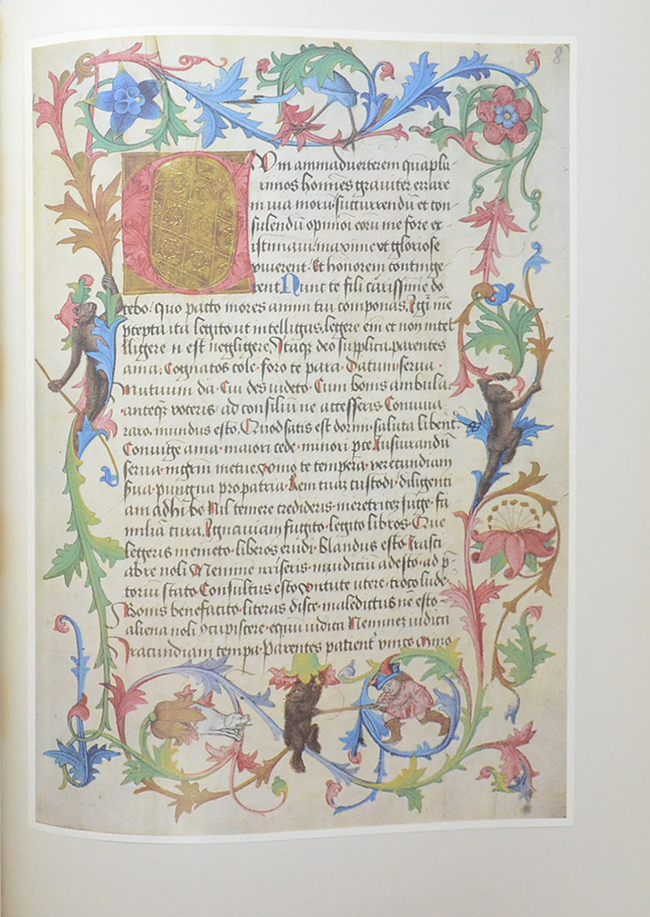 8
Cum animaduerterem quaplu
rimos homines grauiter errare
in via moru succurrendu et con
sulendu opinioi eoru me fore ex
istimaui maxime vt gloriose
viuerent. Et honorem continge
rent Nunc te fili carissime do
cebo. quo pacto mores animi tui componas. Igit me
pcepta ita legito ut intelligas. legere em et non intel
lligere n est negligere. Itaqz deo supplica. parentes
ama. Cognatos cole. foro te para. Datum serua.
Mutuum da. Cui des videto. Cum bonis ambula.
anteqz voceris. ad consiliu ne accesseris Conuiua
raro. mundus esto. Quod satis est dormi. saluta libent.
Coniuge ama. maiori cede. minori pce Iusiurandu
serua. mgrm metue. vino te tempera. verecundiam
sua. pungna pro patria. Rem tuaz custodi. diligenti
am adhibe Nil temere credideris. meretrices fuge. fa
milia cura. Ignauiam fugito. legito libros. Que
legeris memeto. liberos erudi. blandus esto. Irasci
abre noli Nemine irriseris. in iudiciu adesto. ad p
toriu stato Consultus esto. virtute utere. troco lude.
Bonis benefacito. literas disce. maledictus ne esto.
aliena noli cupiscere. equu iudica Neminez iudica
Iracundiam tempa. Parentes patient vince. Mimo